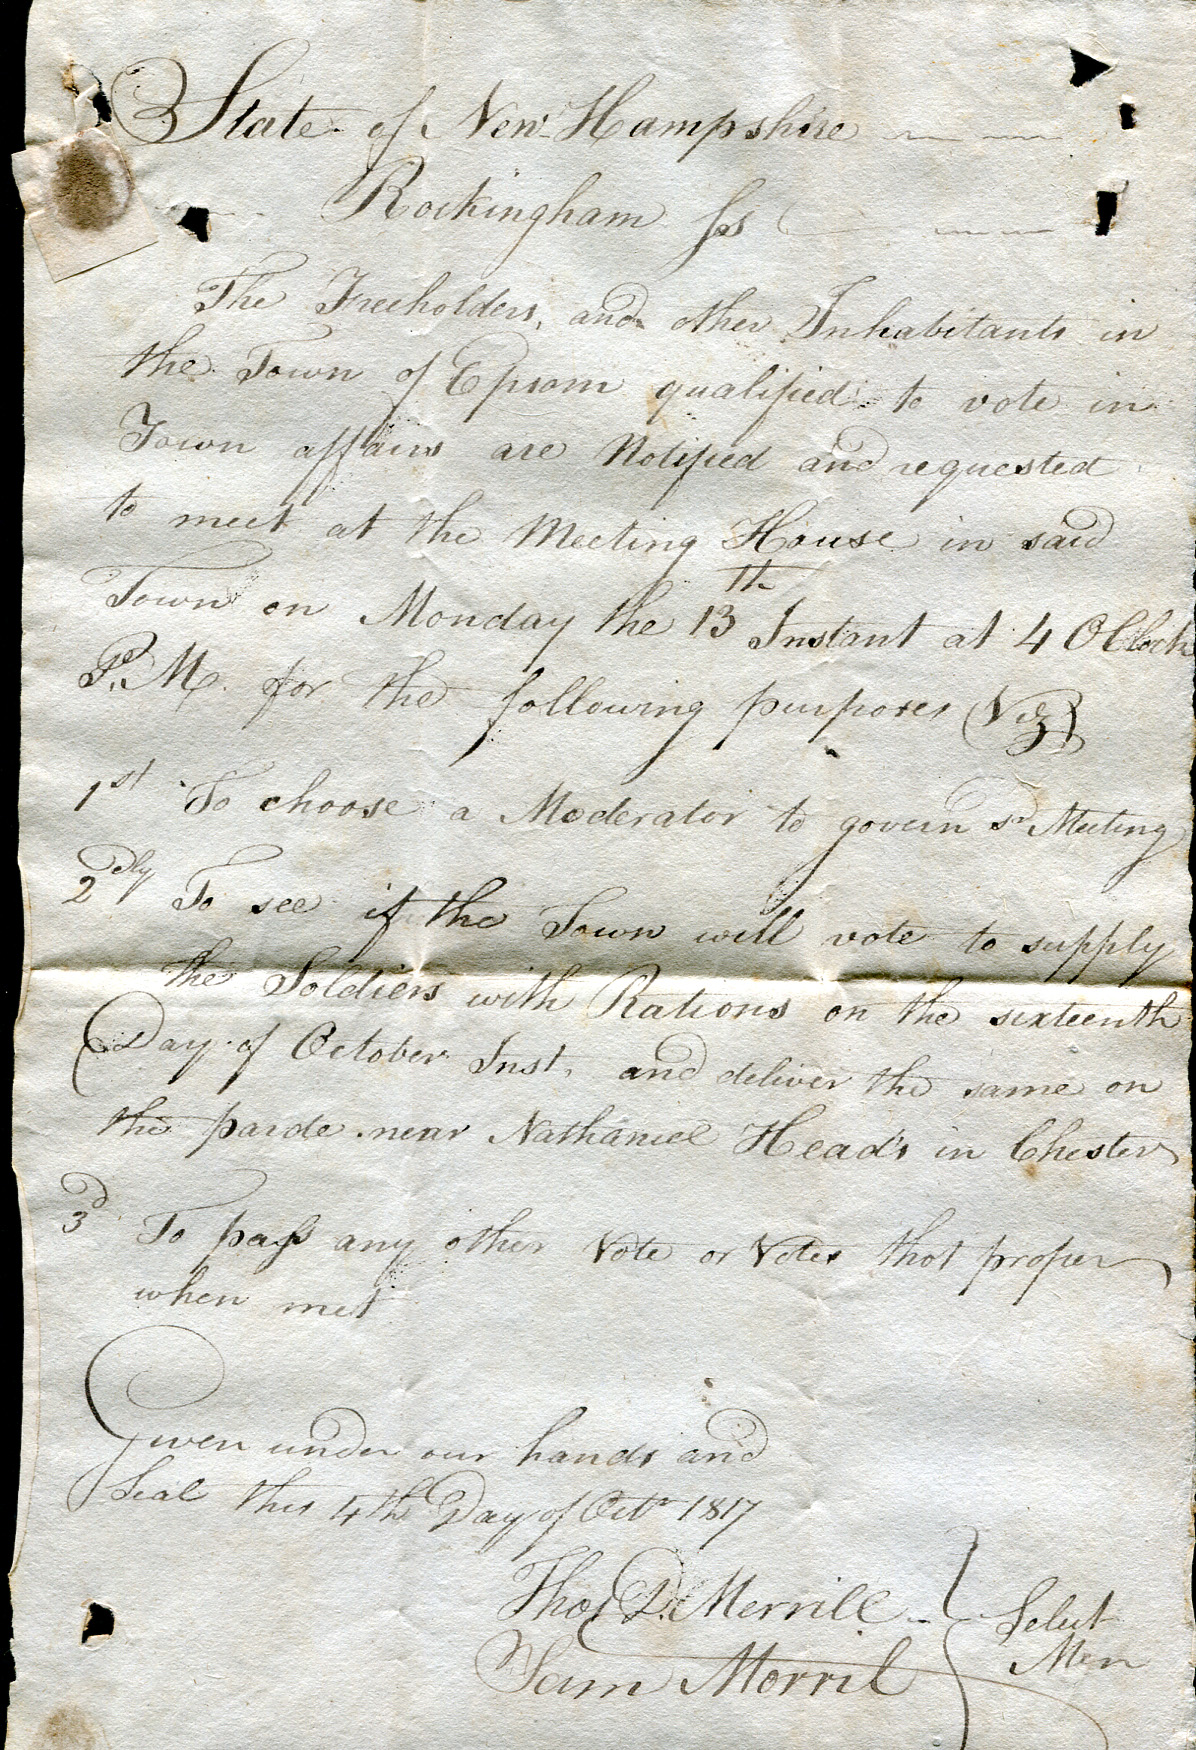 State of New-Hampshire
Rockingham ss
The Freeholders, and other Inhabitants in
the Town of Epsom qualified to vote in
Town affairs are Notified and requested
to meet at the Meeting House in said
Town on Monday the 13th Instant at 4 OClock
P.M. for the following purposes (Viz)
1st To choose a Moderator to govern sd Meeting
2dly To see if the Town will vote to supply
the Soldiers with Rations on the sixteenth
Day of October Inst, and deliver the same on
the parde near Nathaniel Head's in Chester
3d To pass any other Vote or Votes thot proper
when met
Given under our hands and
Seal this 4th Day of Octr 1817
Thos D. Merrill
Sam Morril
Select
Men